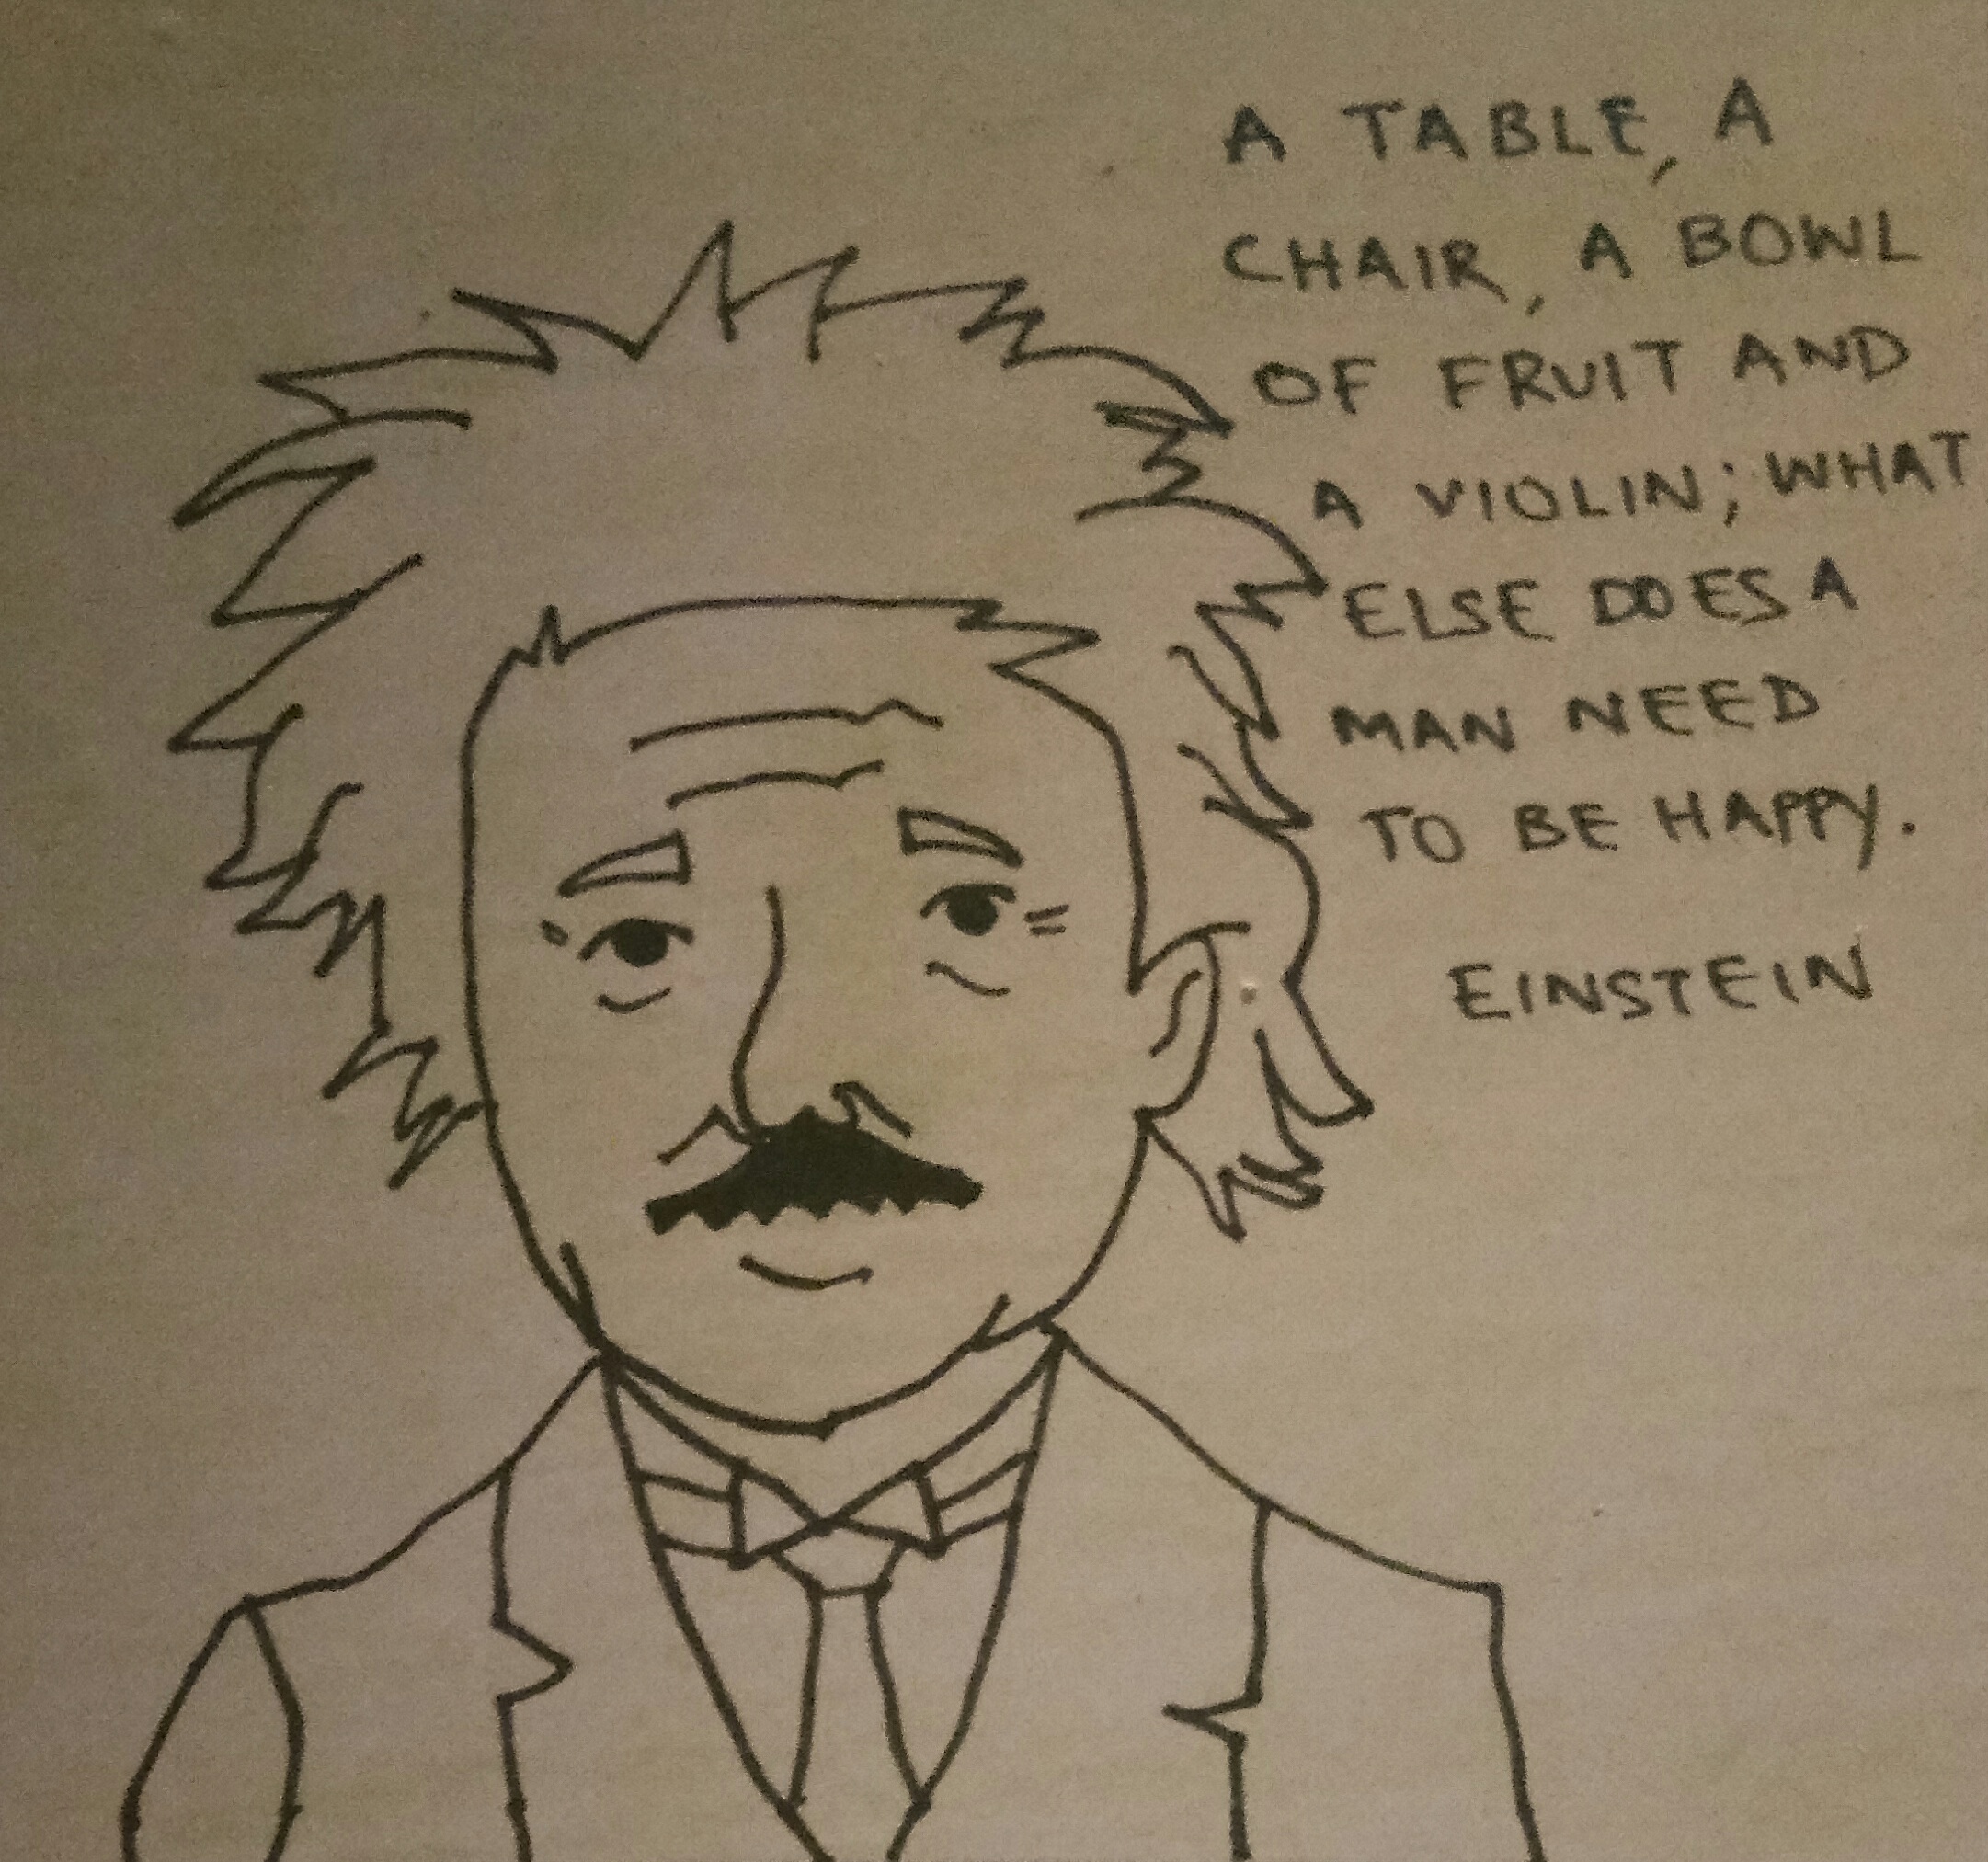 A TABLE, A
CHAIR, A BOWL
OF FRUIT AND
A VIOLIN; WHAT
ELSE DOES A
MAN NEED
TO BE HAPPY.
EINSTEIN